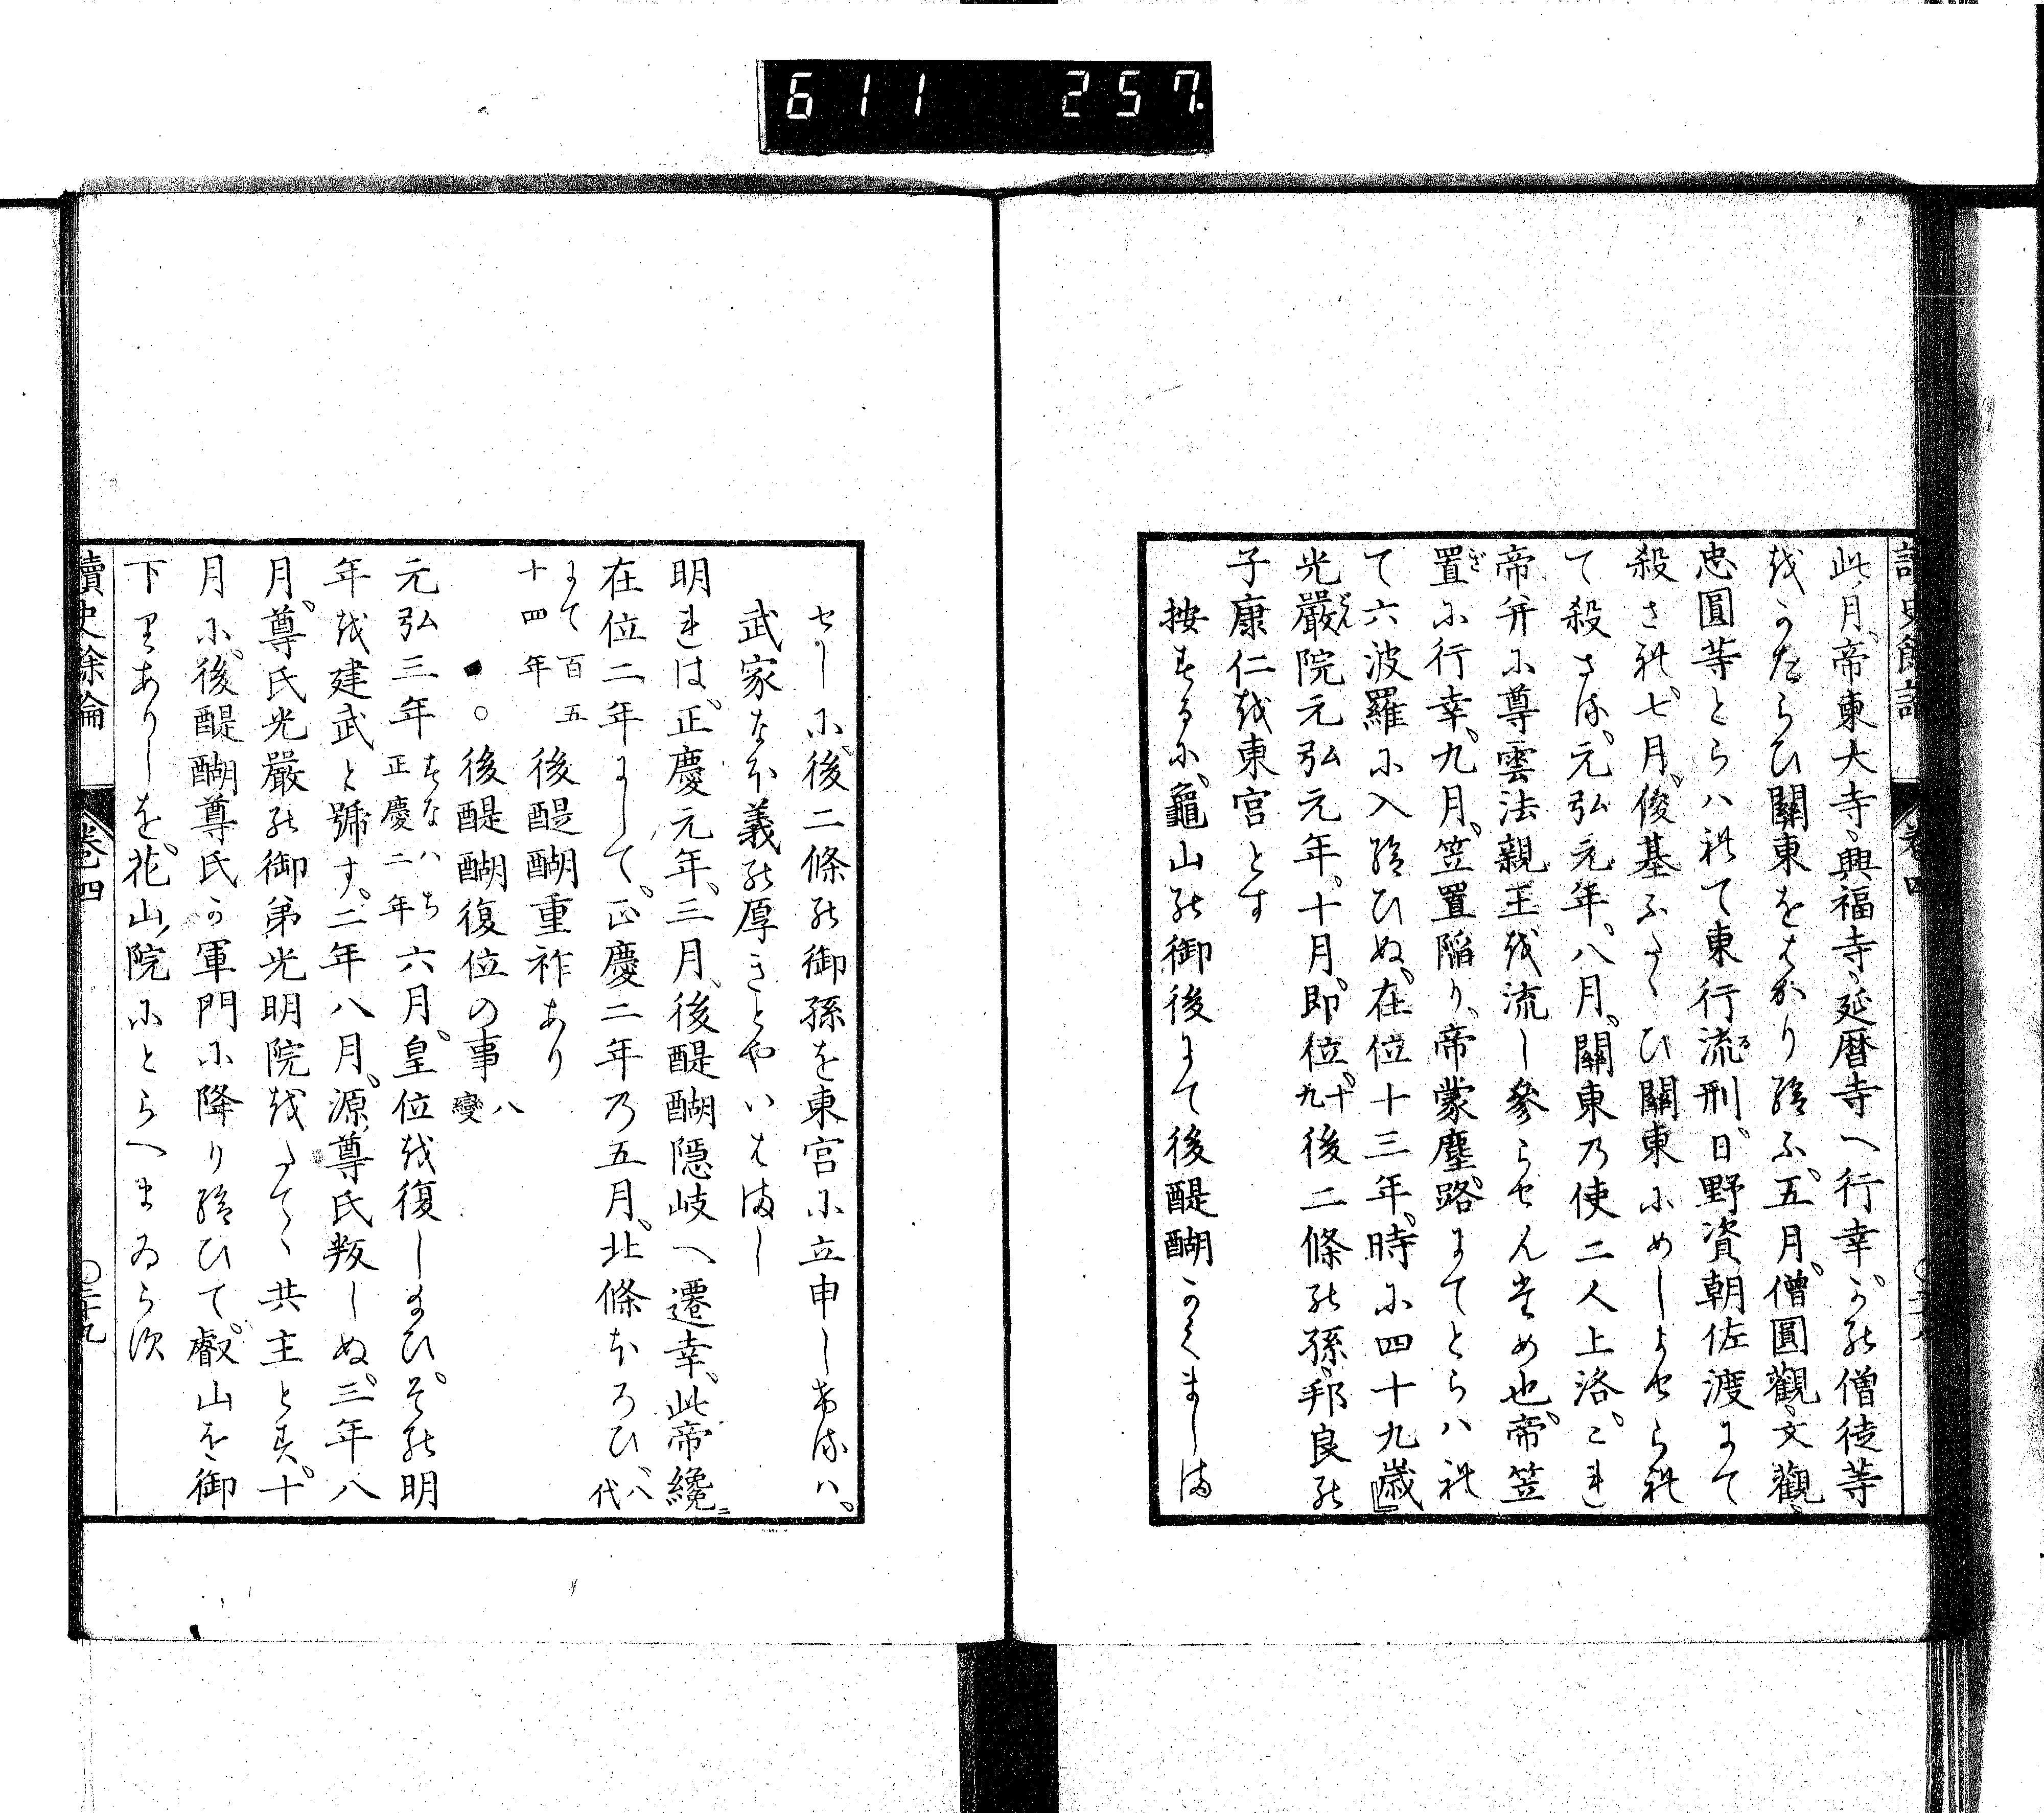 6 1 1 2 5 7.
此月、帝東大寺、興福寺、延暦寺へ行幸。かの僧徒等
をかたらひ關東をはかり給ふ。五月、僧圓觀、文觀、
忠圓等とらハれて東行流刑、日野資朝佐渡にて
殺され、七月、俊基ふたゝひ關東にめしよせられ
て殺さる。元弘元年、八月、關東の使二人上洛。これ
帝并に尊雲法親王を流し參らせんため也。帝笠
置に行幸、九月、笠置陥り、帝蒙塵、路にてとらハれ
て六波羅に入給ひぬ。在位十三年、時に四十九歳
光嚴院元弘元年、十月、即位。十九後二條の孫、邦良の
子康仁を東宮とす
按するに、龜山の御後にて後醍醐かくましま
せしに、後二條の御孫を東宮に立申しけるハ、
武家なほ義の厚きとやいはまし
明れは、正慶元年、三月、後醍醐隠岐へ遷幸、此帝纔ニ
在位二年にして、正慶二年の五月、北條ほろひ、八代
にて百五十四年後醍醐重祚あり
○後醍醐復位の事八變
元弘三年すなハち正慶二年六月、皇位を復し給ひ、その明
年を建武と號す。二年八月、源尊氏叛しぬ。三年八
月、尊氏光嚴の御弟光明院をたてゝ共主とす。十
月に、後醍醐尊氏か軍門に降り給ひて、叡山を御
下りありしを、花山院にとらへまゐらす
讀史餘論 卷四 〇三十九